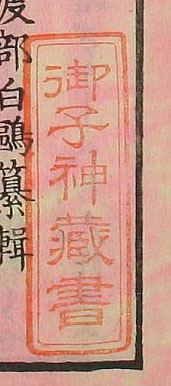 御子神藏書
部白鷗纂輯